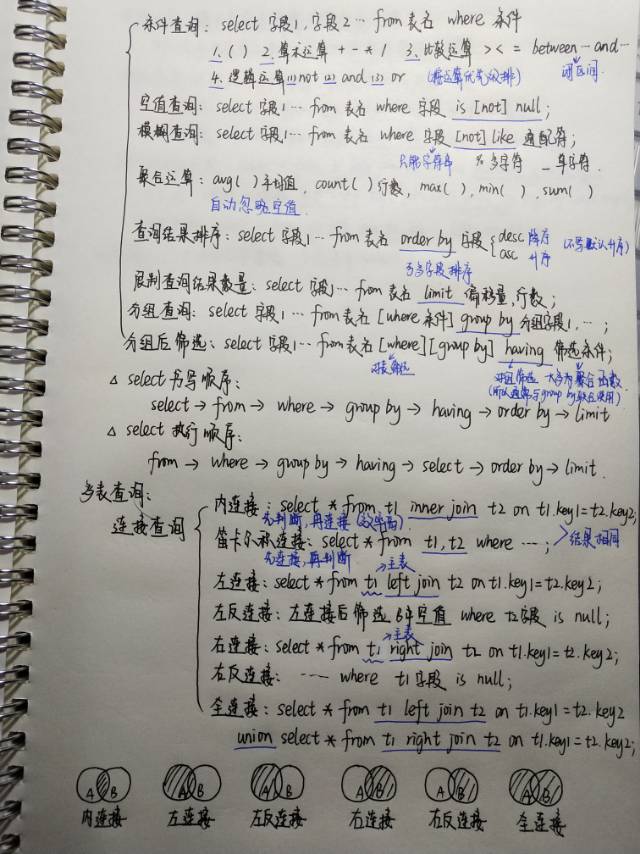 条件查询: select 字段1,字段2… from 表名 where 条件
1.( ) 2.算术运算 + - * / 3.比较运算 > < = between…and…
4.逻辑运算 (1)not (2)and (3)or (按运算优先级排) 闭区间
空值查询: select 字段1… from 表名 where 字段 is [not] null;
模糊查询: select 字段1… from 表名 where 字段 [not] like 通配符;
只能字符串 % 多字符 _ 单字符
聚合运算: avg( )平均值, count( )行数, max( ), min( ), sum( )
自动忽略空值
查询结果排序: select 字段1… from 表名 order by 字段 { desc 降序 (不写默认升序)
asc 升序
可多字段排序
限制查询结果数量: select 字段1… from 表名 limit 偏移量,行数;
分组查询: select 字段1… from 表名 [where 条件] group by 分组字段1, …;
分组后筛选: select 字段1… from 表名 [where] [group by] having 筛选条件;
对表筛选 对组筛选 大多为聚合函数
(所以通常与group by联合使用)
△ select 书写顺序:
select → from → where → group by → having → order by → limit
△ select 执行顺序:
from → where → group by → having → select → order by → limit.
多表查询:
连接查询
内连接: select * from t1 inner join t2 on t1.key1=t2.key2;
先判断,再连接
笛卡尔积连接: select * from t1,t2 where …; 结果相同
先连接,再判断 →主表
左连接: select * from t1 left join t2 on t1.key1=t2.key2;
左反连接: 左连接后筛选 B中空值 where t2字段 is null;
→主表
右连接: select * from t1 right join t2 on t1.key1=t2.key2;
右反连接: …… where t1字段 is null;
全连接: select * from t1 left join t2 on t1.key1=t2.key2
union select * from t1 right join t2 on t1.key1=t2.key2;
A B A B A B A B A B A B
内连接 左连接 左反连接 右连接 右反连接 全连接